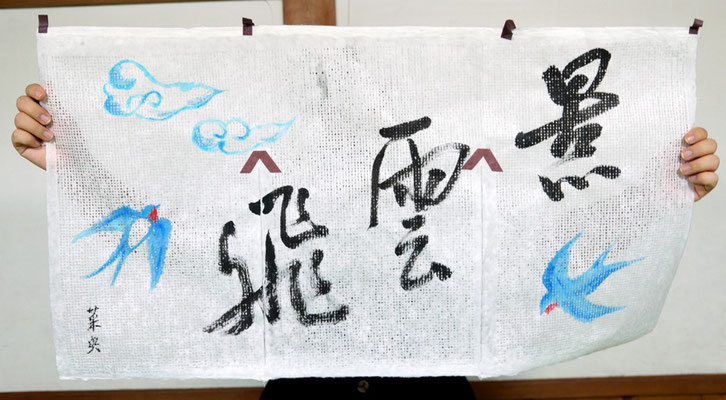 景雲飛
菜央